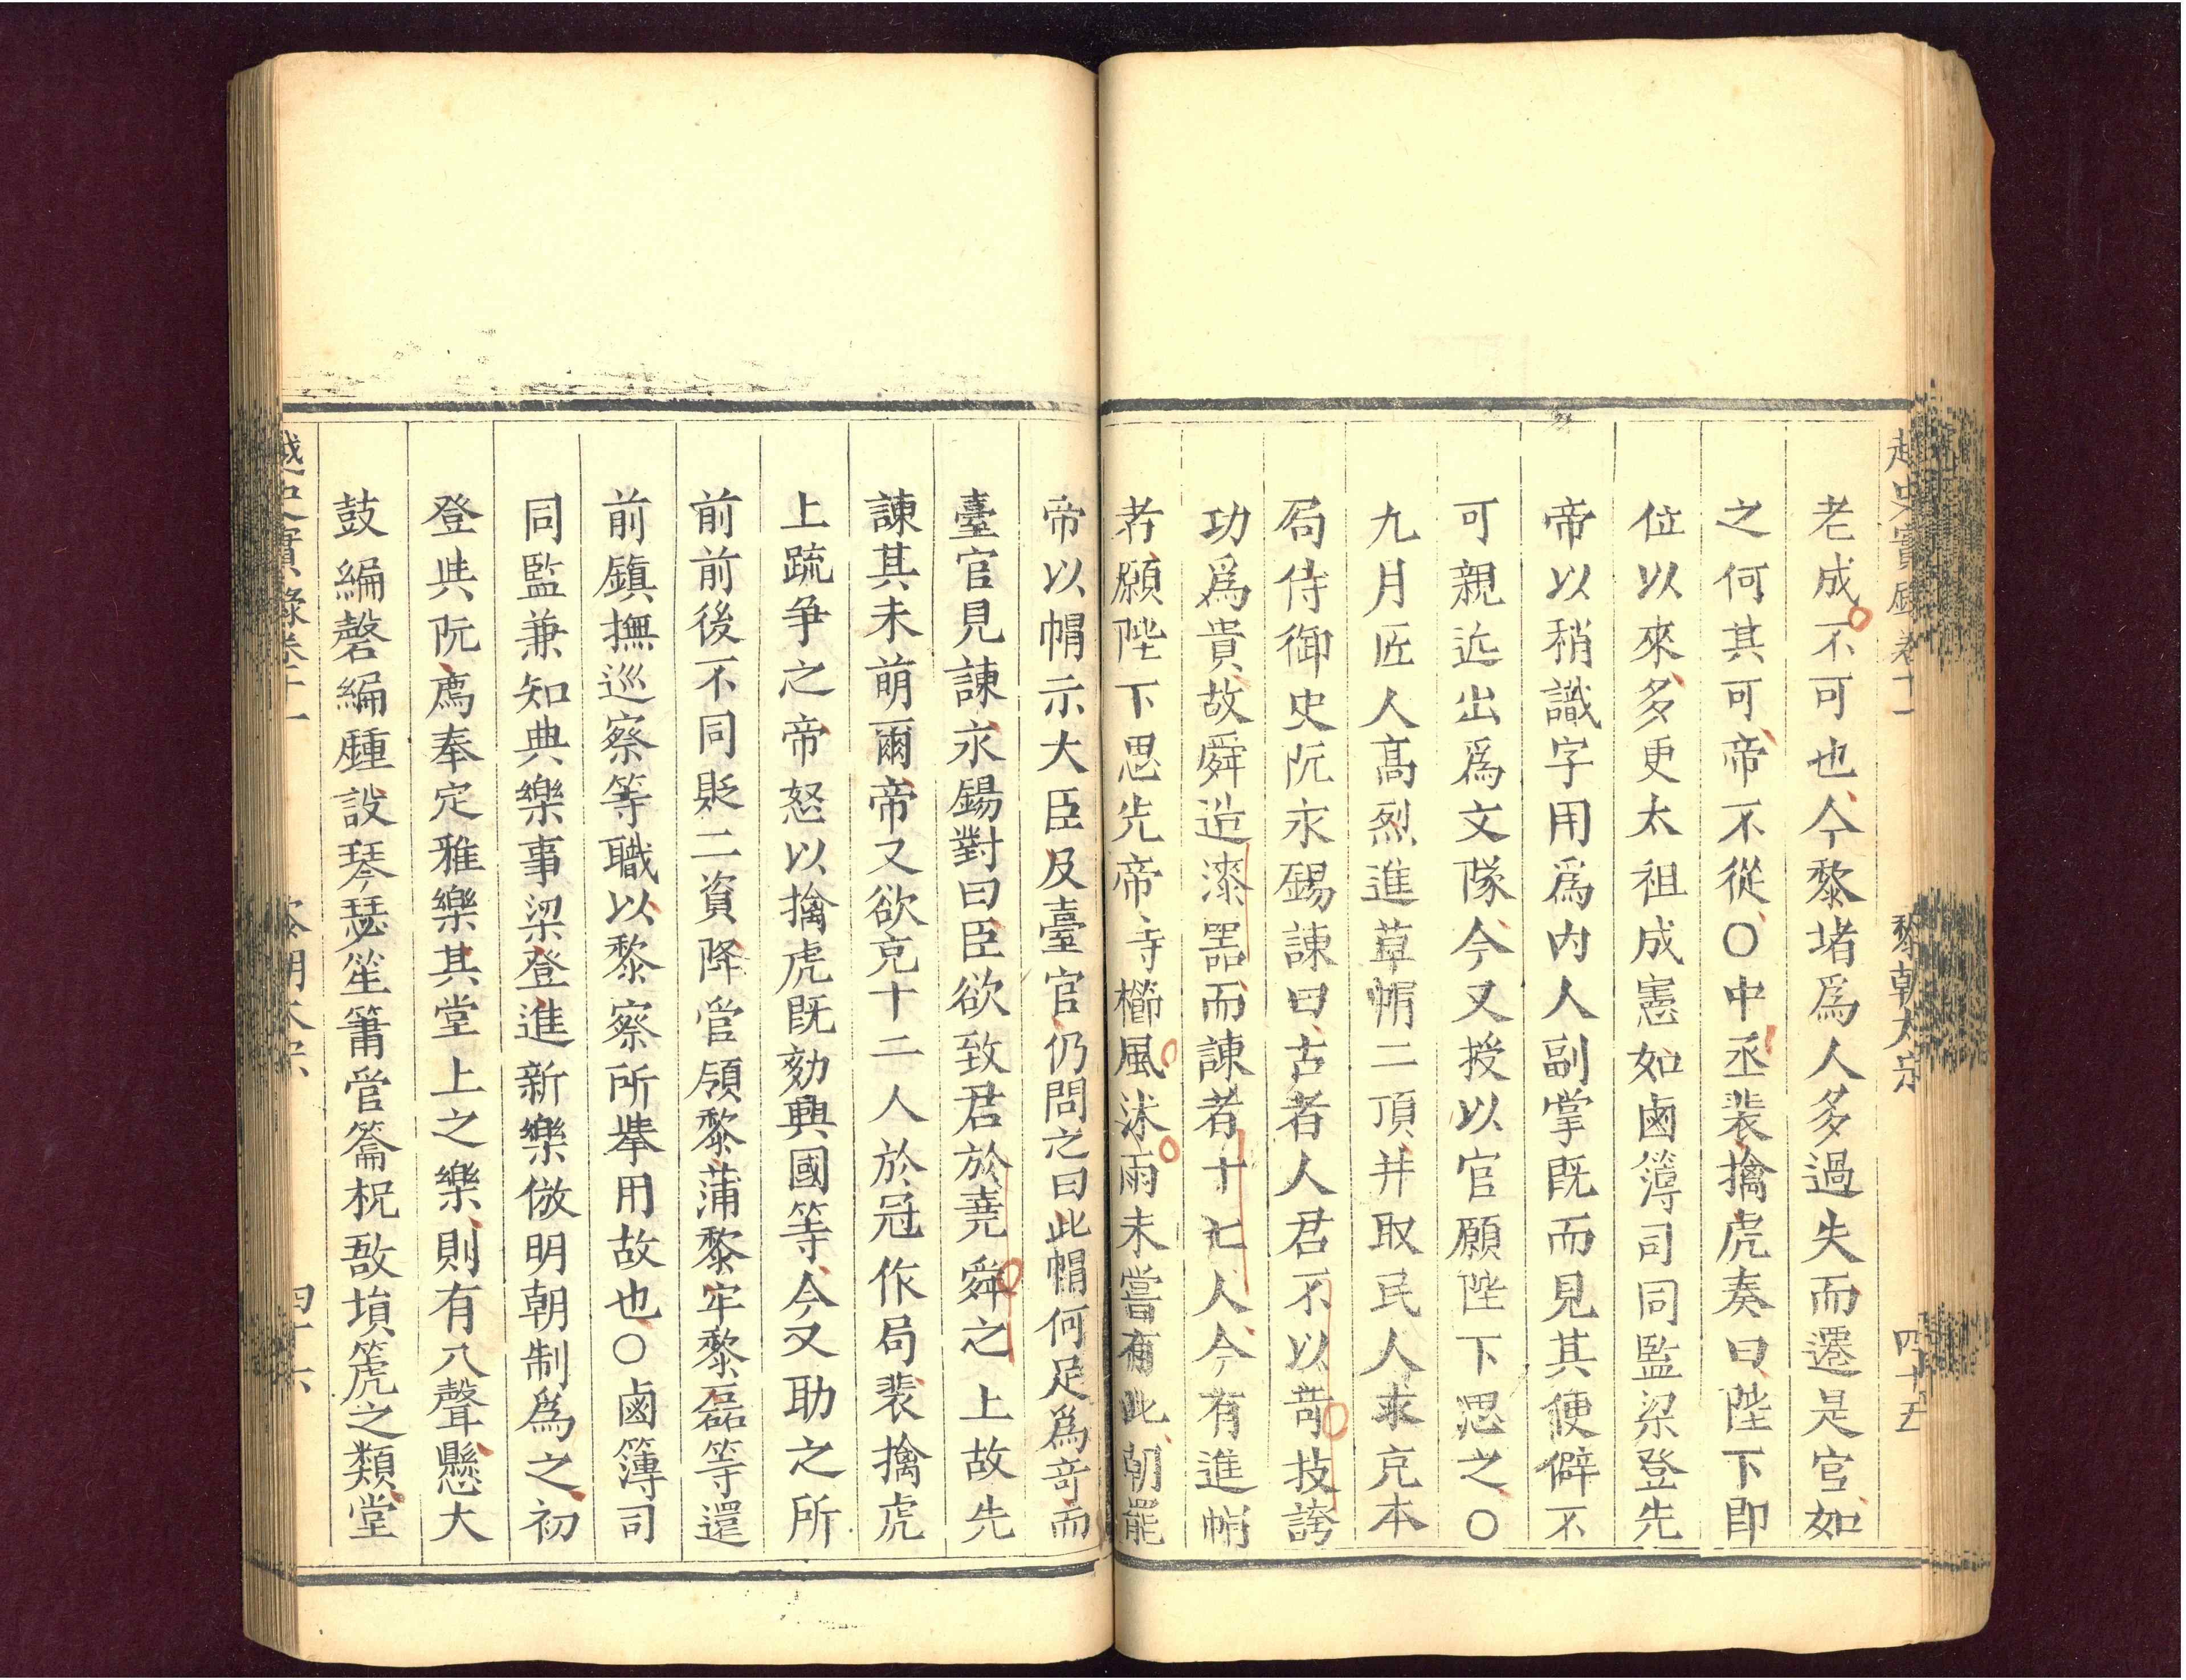 越史實錄卷十一 黎朝太宗 四十五
老成不可也今黎堵爲人多過失而遷是官如
之何其可帝不從〇中丞裴擒虎奏曰陛下即
位以來多更太祖成憲如鹵簿司同監梁登先
帝以稍識字用爲内人副掌既而見其便僻不
可親近出爲文隊今又授以官願陛下思之〇
九月匠人高烈進草㡌二頂并取民人求克本
局侍御史阮永錫諫曰古者人君不以竒技誇
功爲貴故舜造漆噐而諫者十七人今有進㡌
者願陛下思先帝寺櫛風沐雨未嘗有此朝罷
帝以㡌示大臣及臺官仍問之曰此㡌何足爲竒而
臺官見諫永錫對曰臣欲致君於堯舜之上故先
諫其未萌爾帝又欲克十二人於冠作局裴擒虎
上疏争之帝怒以擒虎既効興國等今又助之所
前前後不同貶二資降管領黎蒲黎牢黎磊等還
前鎮撫巡察等職以黎察所舉用故也〇鹵簿司
同監兼知典樂事梁登進新樂倣明朝制爲之初
登與阮廌奉定雅樂其堂上之樂則有八聲懸大
鼓編磬編鍾設琴瑟笙簫管籥柷敔塤篪之類堂
越史實錄卷十一 黎朝太宗 四十六